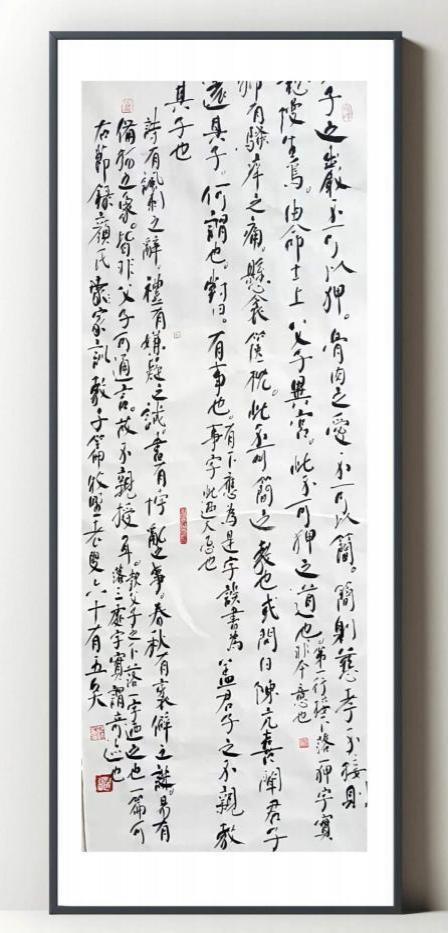 子之嚴不可以狎。骨肉之愛不可以簡。簡則慈孝不接則
慢生焉。由命士上父子異宮。此不可狎之道也第一行接下落一狎字實
非今意也
有騷庠之痛。懸衾篋枕。此不可簡之教也或問曰陳亢喜聞君子
遠其子。何謂也。對曰。有事也。有下應為是字誤書為
事字此過大也
蓋君子之不親教
其子也
詩有諷刺之辭。禮有嫌疑之誡。書有悖亂之事。春秋有衺僻之譏。易有
備物之象。皆非父子可通言。故不親授耳。父子之下落一字過之也一篇可
落三處字實謂奇迹也
右節錄顏氏家訓教子篇牧野老叟六十有五矣